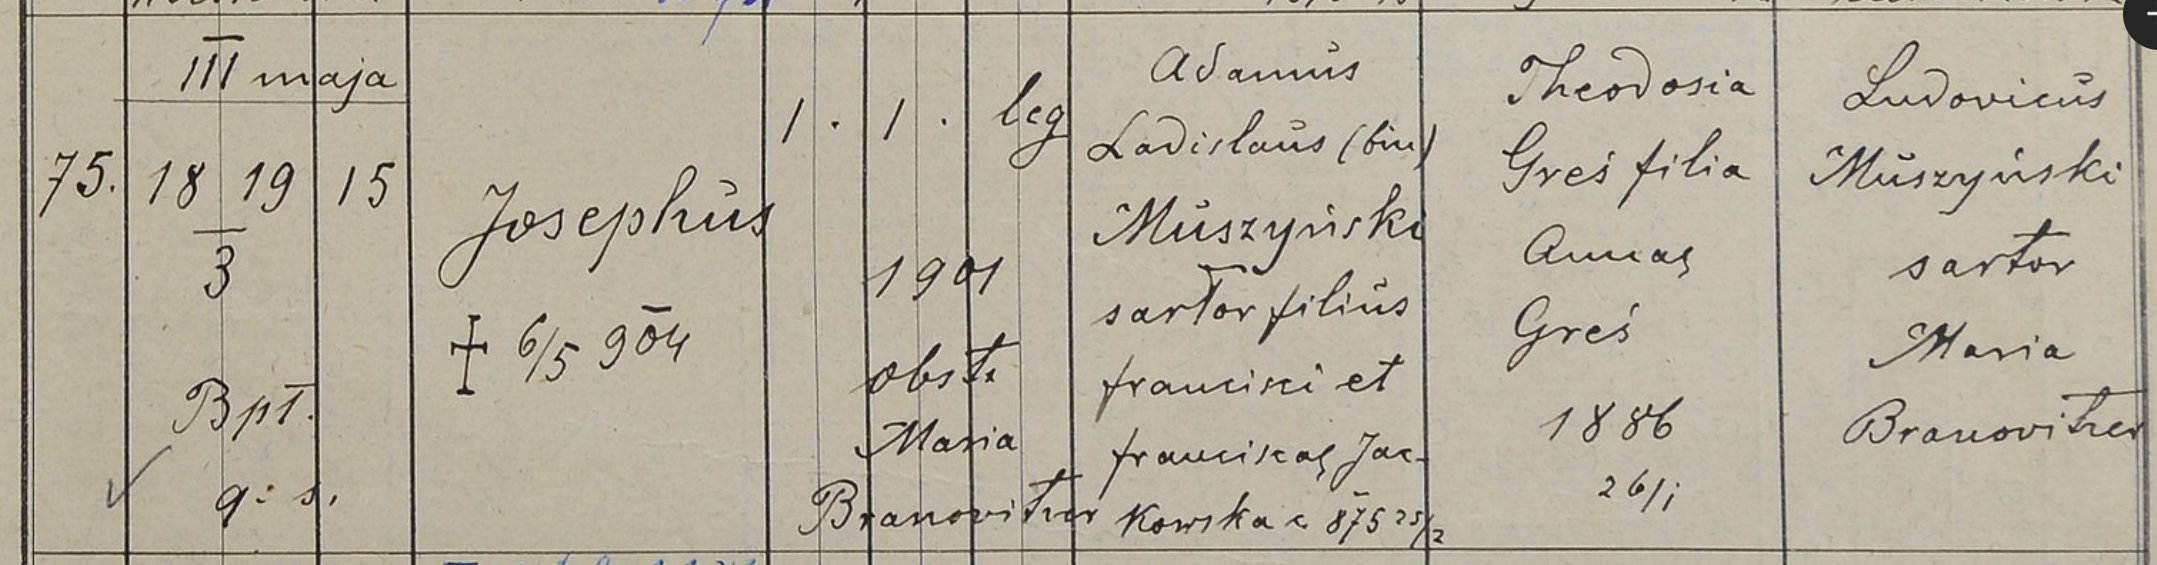 III maja
75. 18 19 15
3
Bpt.
q. s.
Josephus
+ 6/5 904
1. 1. leg
1901
obst.
Maria
Branovitzer
Adamus
Ladislaus (bin)
Muszyński
sartor filius
francisci et
franciscae Jac-
kowska a 875 25/2
Theodosia
Greś filia
Annae
Greś
1886
26/1
Ludovicus
Muszyński
sartor
Maria
Branovitzer